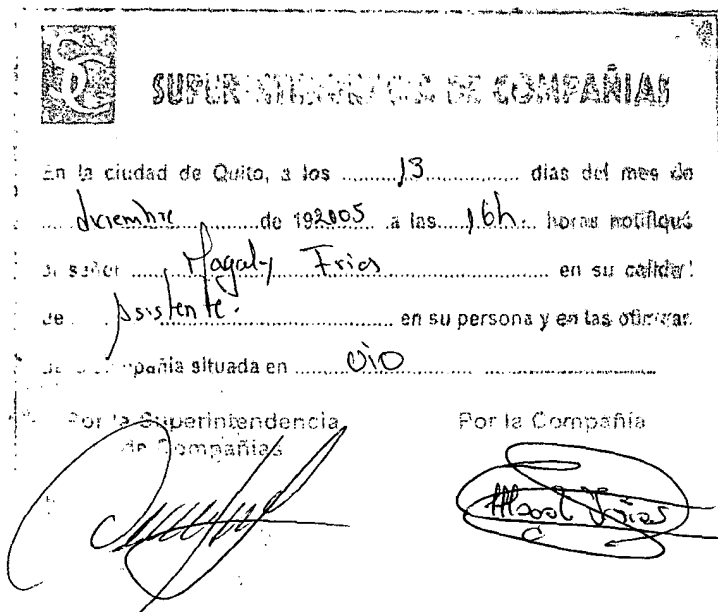 SC
SUPERINTENDENCIA DE COMPAÑIAS
En la ciudad de Quito, a los ......13...... días del mes de
diciembre de 192005 a las 16h. horas notifiqué
al señor Magaly Frias en su calidad
de Asistente. en su persona y en las oficinas
de compañia situada en UIO
Por la Superintendencia
de Compañias
Por la Compañía
Frias